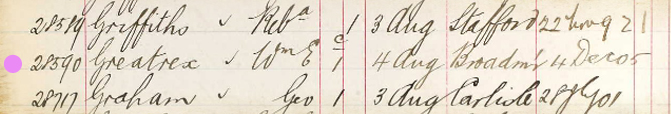 28519 Griffiths ✓ Reb^a 1 3 Aug Stafford 22 Nov 9 21
28590 Greatrex ✓ W^m E c 1 4 Aug Broadm^r 4 Dec 05
28717 Graham ✓ Geo 1 3 Aug Carlisle 28 01